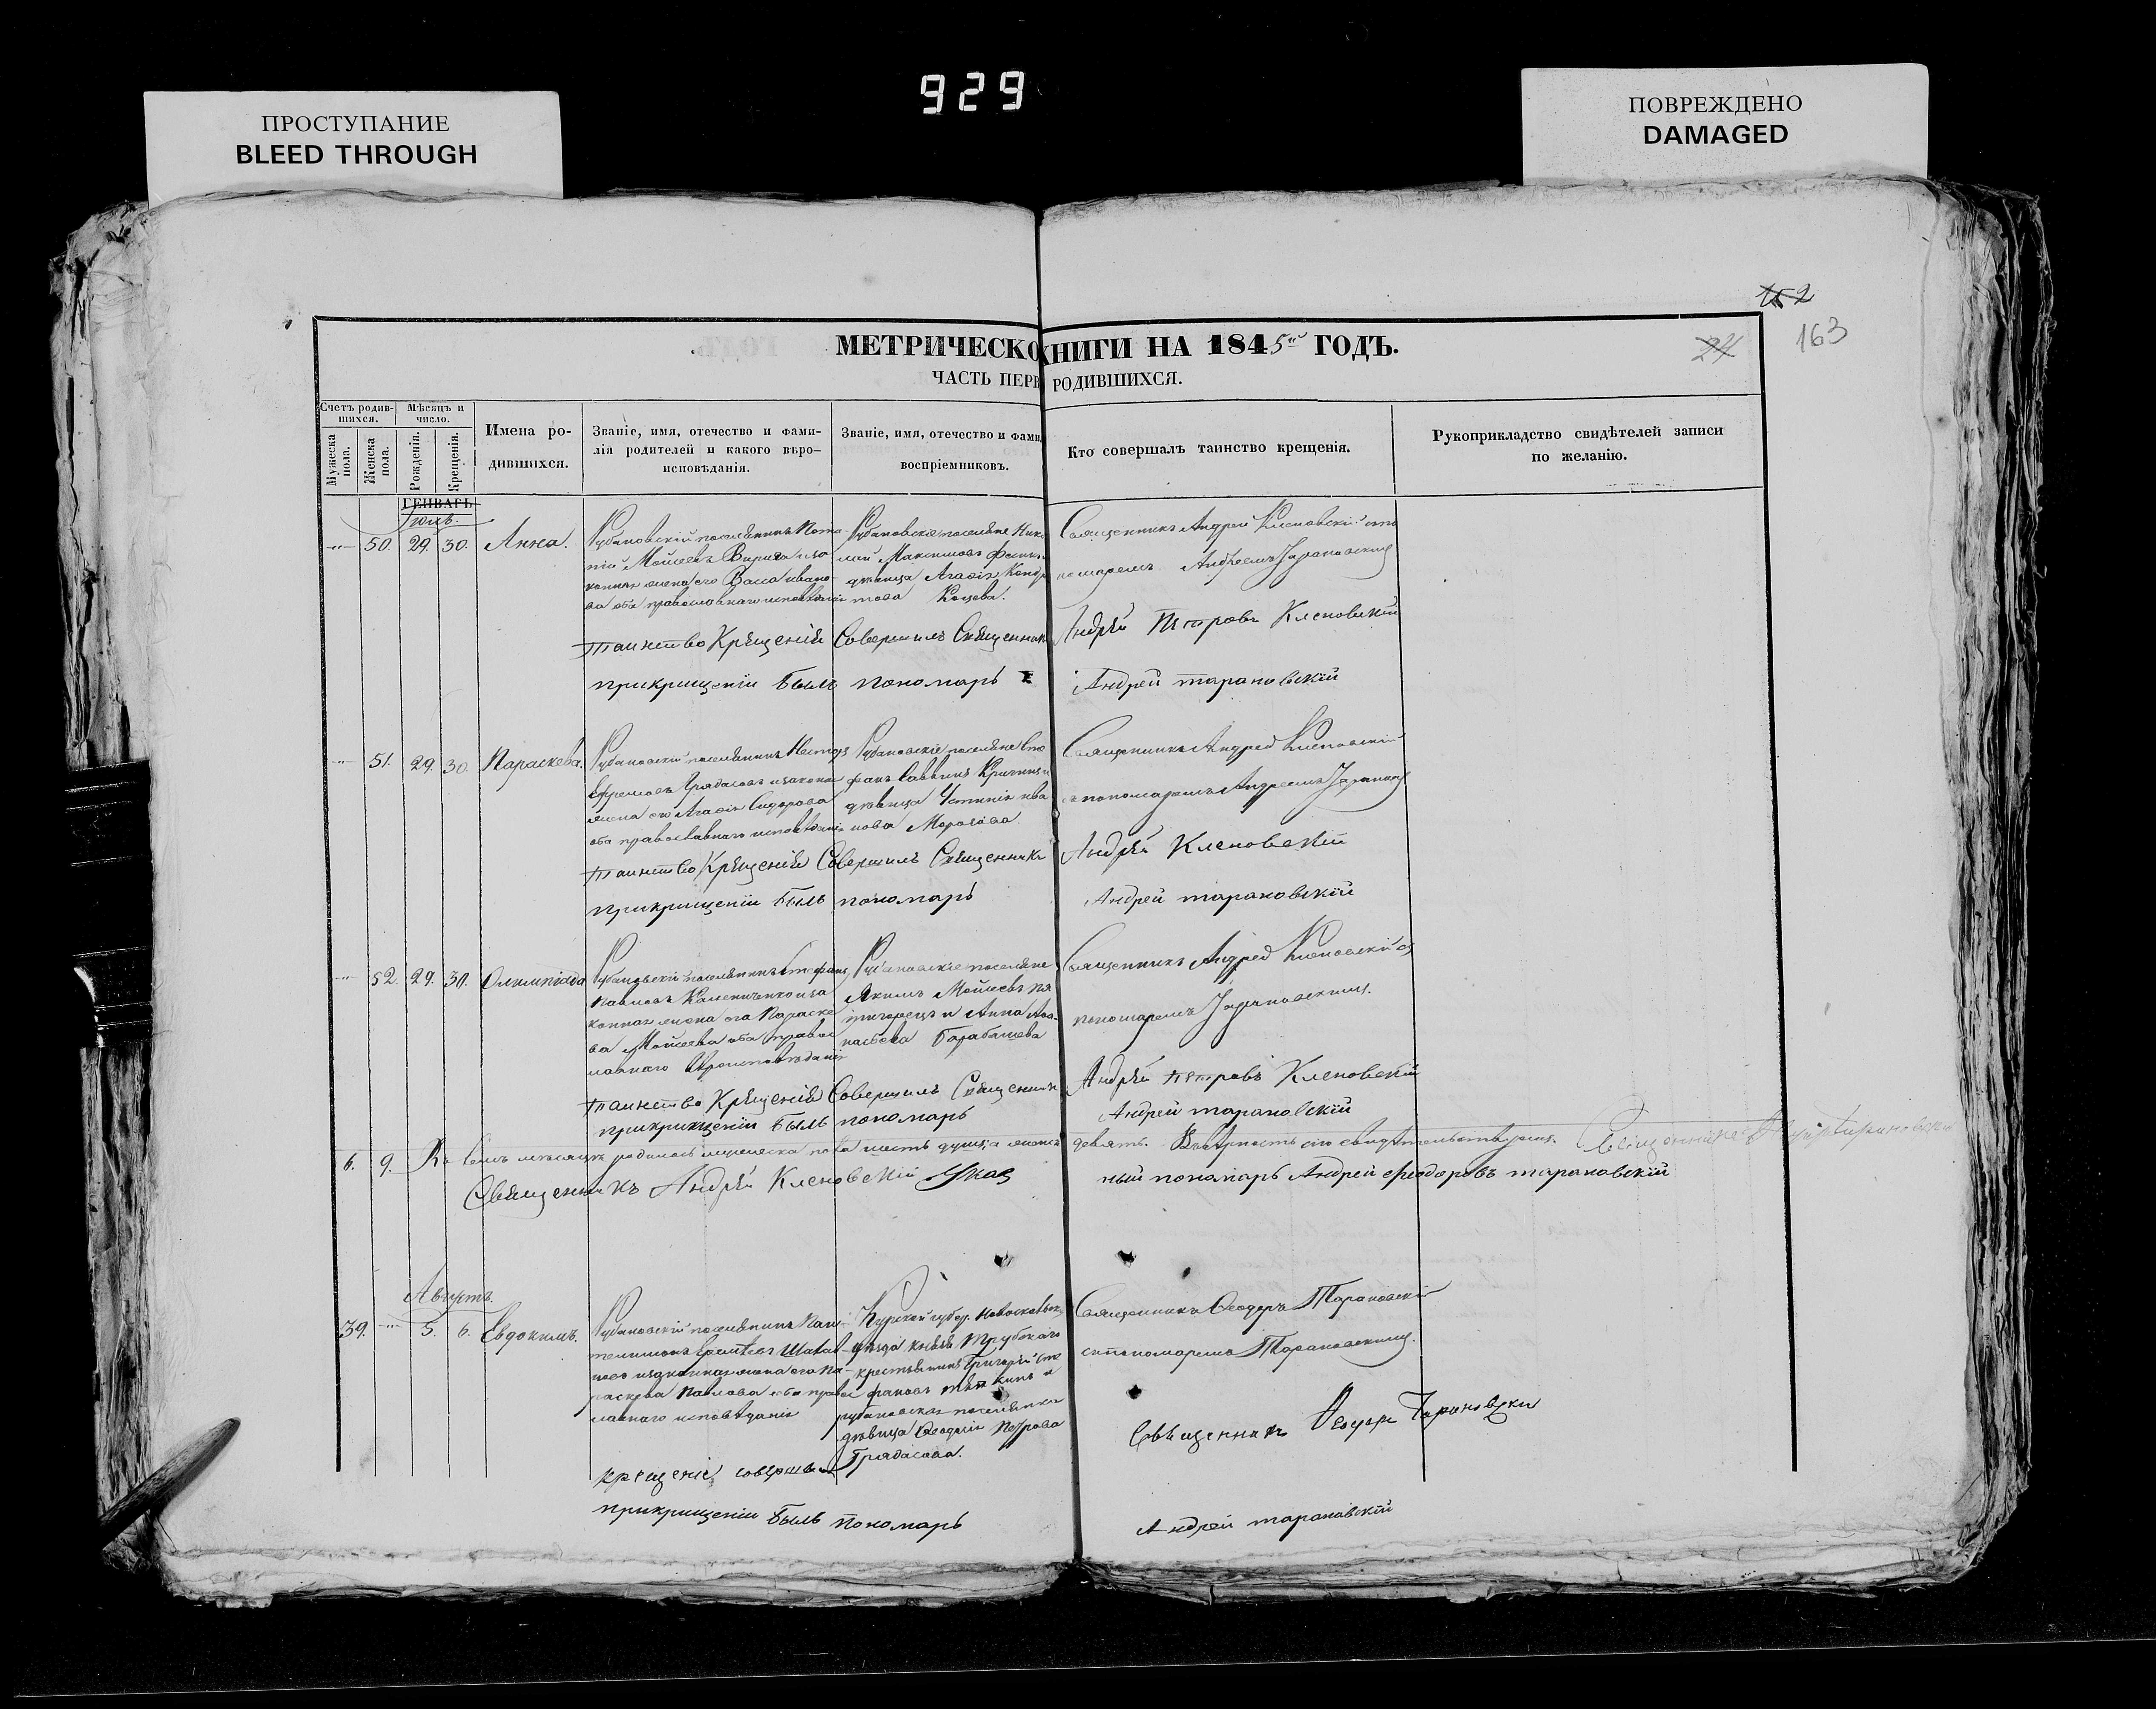 929
ПРОСТУПАНИЕ
BLEED THROUGH
ПОВРЕЖДЕНО
DAMAGED
152
163
24
МЕТРИЧЕСКО КНИГИ НА 1845й ГОДЪ.
ЧАСТЬ ПЕРВ РОДИВШИХСЯ.
Счетъ родив-
шихся.
Мужеска пола.
Женска пола.
Мѣсяцъ и
число.
Рожденія.
Крещенія.
Имена ро-
дившихся.
Званіе, имя, отечество и фами-
лія родителей и какого вѣро-
исповѣданія.
Званіе, имя, отечество и фами
воспріемниковъ.
Кто совершалъ таинство крещенія.
Рукоприкладство свидѣтелей записи
по желанію.
ГЕНВАРЬ
Іюль.
50. 29. 30. Анна.
Рубановскій поселянинъ Пота-
пій Моисеевъ и за-
конная жена его Васса Ивано-
ва оба православнаго исповѣданія
Рубановскіе поселяне Нико
лай Максимовъ
дѣвица Агафія Кондр
това
Священникъ Андрей Кленовскій съ по
номаремъ Андреемъ Тарановскимъ
Таинство Крещенія Совершилъ Священникъ Андрей Петровъ Кленовскій
прикрищеніи Былъ пономарь Андрей тарановскій
51. 29. 30. Параскева.
Рубановскій поселянинъ Несторъ
Ефремовъ Грядасовъ и законная
жена его Агафія Сидорова
оба православнаго исповѣданія
Рубановскіе поселяне Сте
фанъ Саввинъ
дѣвица Устинія Ива
нова Морозова.
Священникъ Андрей Кленовскій
съ пономаремъ Андреемъ Таранов
Таинство Крещенія Совершилъ Священникъ Андрей Кленовскій
прикрищеніи Былъ пономарь Андрей тарановскій
52. 29. 30. Олимпіада
Рубановскій поселянинъ Стефанъ
Павловъ и за
конная жена его Параске
ва Моисеева оба правос
лавнаго вѣроисповѣданія
Рубановскіе поселяне
Якимъ Моисеевъ
и Анна Афа-
насьева Барабашева
Священникъ Андрей Кленовскій съ
пономаремъ Тарановскимъ.
Таинство Крещенія Совершилъ Священникъ Андрей Петровъ Кленовскій
прикрищеніи Былъ пономарь Андрей тарановскій
6. 9. Въ семъ мѣсяцѣ родилось мужеска пола шесть душъ, а женска девять. Въ вѣрность сего свидѣтельствуемъ. Священникъ
Священникъ Андрей Кленовскій Указ ный пономарь Андрей Феодоровъ тарановскій
Августъ.
39. 5. 6. Евдокимъ.
Рубановскій поселянинъ Пан-
телимонъ
и законная жена его Па-
раскева Павлова оба правос
лавнаго исповѣданія
Курской губер.
уѣзда князя Трубскаго
крестьянинъ Григорій Сте
фановъ и
рубановская поселянка
дѣвица Феодосія Петрова
Грядасова.
Священникъ Феодоръ Тарановскій
съ пономаремъ Тарановскимъ.
крещеніе совершилъ Священникъ Феодоръ Тарановски
прикрищеніи Былъ пономарь Андрей тарановскій